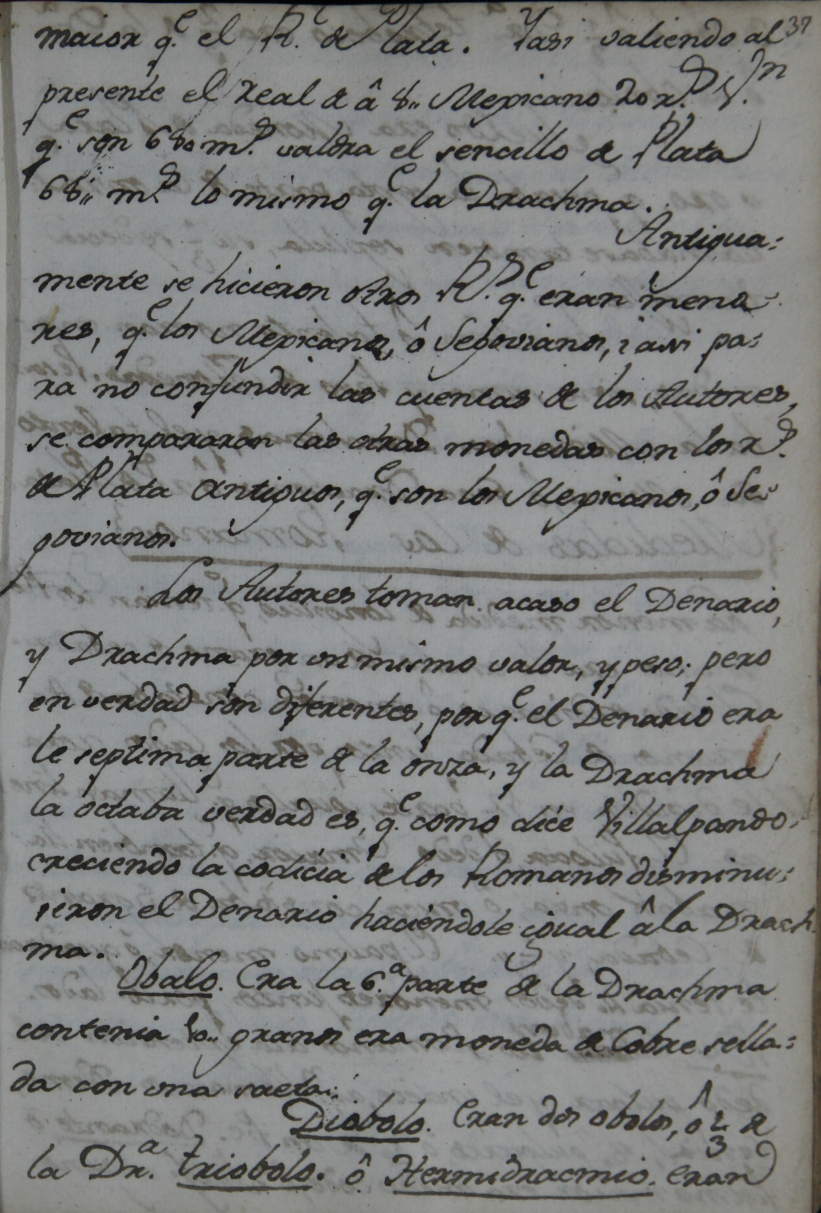 37
maior q.e el R.l de Plata. Y asi valiendo al
presente el real de â 8,, Mexicano 20 r.s V.n
q.e son 680 m.s valdra el sencillo de Plata
68,, m.s lo mismo q.e la Drachma.
Antigua-
mente se hicieron otros R.s q.e eran meno-
res, q.e los Mexicanos, ô Segovianos, i assi pa-
ra no confundir las cuentas de los Autores,
se compararan las otras monedas con los r.s
de Plata antiguos, q.e son los Mexicanos, ô Se-
govianos.
Los Autores toman acaso el Denario,
y Drachma por un mismo valor, y peso; pero
en verdad son diferentes, por q.e el Denario era
le septima parte de la onza, y la Drachma
la octaba verdad es, q.e como dice Villalpando,
creciendo la codicia de los Romanos disminu-
ieron el Denario haciendole igual â la Drach
ma.
Obalo. Era la 6.a parte de la Drachma
contenia 10,, granos era moneda de Cobre sella-
da con una saeta.
Diobolo. Eran dos obolos, ô 2/3 de
la Dr.a triobolo. ô Hermidracmio. eran